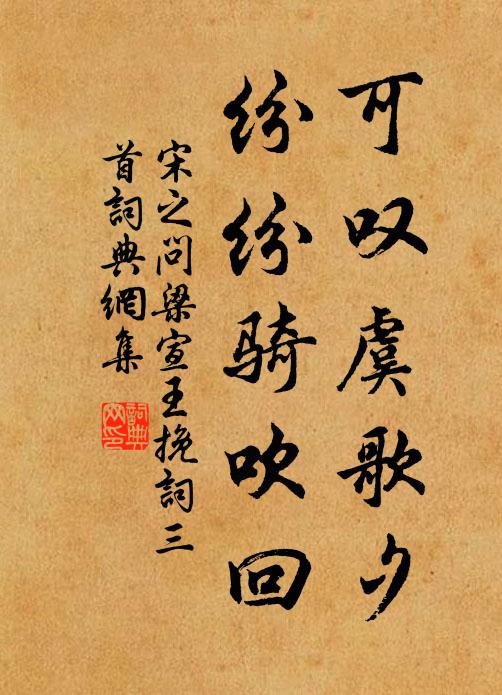 可叹虞歌夕
纷纷骑吹回
宋之问梁宣王挽詞三
首詞典網集
詞典
网印